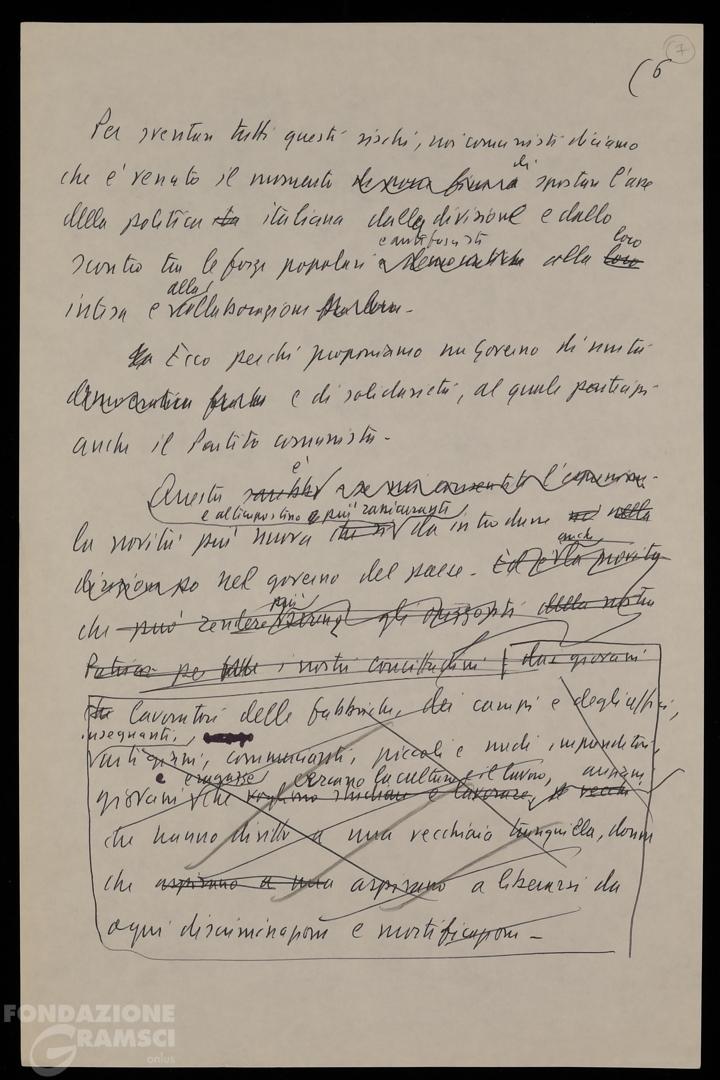 7
(6
Per sventare tutti questi rischi, noi comunisti diciamo
che è venuto il momento di spostare l'asse
della politica italiana dalla divisione e dallo
e antifascisti
loro
scontro tra le forze popolari e democratiche alla loro
alla
intesa e collaborazione fra loro.
Ecco perché proponiamo un Governo di unità
democratica e di solidarietà, al quale partecipi
anche il Partito comunista.
è
Questa sarebbe
e al tempo stesso più rassicurante
la novità più nuova che si da introdurre nella
anche
direzione nel governo del paese. Ed è la novità
più
che può rendere gli della nostra
per tutti i nostri concittadini dai giovani
lavoratori delle fabbriche, dei campi e degli uffici,
insegnanti,
artigiani, commercianti, piccoli e medi imprenditori,
e ragazze cercano la cultura e il lavoro, anziani
giovani che vogliono studiare e lavorare, vecchi
che hanno diritto a una vecchiaia tranquilla, donne
che aspirano a una aspirano a liberarsi da
ogni discriminazione e mortificazione.
FONDAZIONE
GRAMSCI
onlus